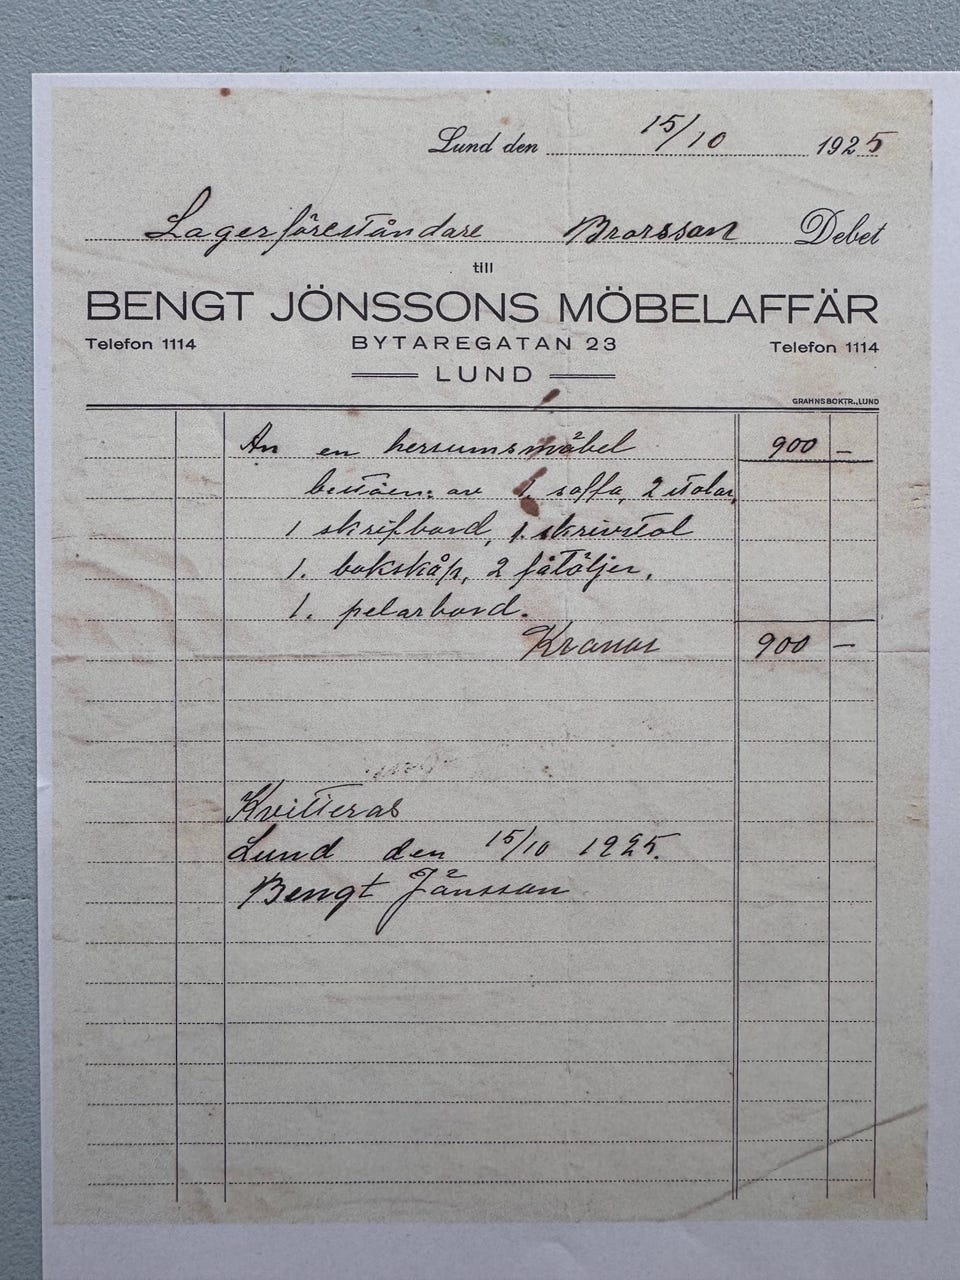 Lund den 15/10 1925
Lagerföreståndare Brorsson Debet
till
BENGT JÖNSSONS MÖBELAFFÄR
Telefon 1114 BYTAREGATAN 23 Telefon 1114
LUND
GRAHNS BOKTR., LUND
An en herrumsmöbel 900 —
beståen: av 1. soffa, 2 stolar,
1 skrifbord, 1. skrivstol
1. bokskåp, 2 fåtöljer.
1. pelarbord.
Kronor 900 —
Kvitteras
Lund den 15/10 1925.
Bengt Jönsson